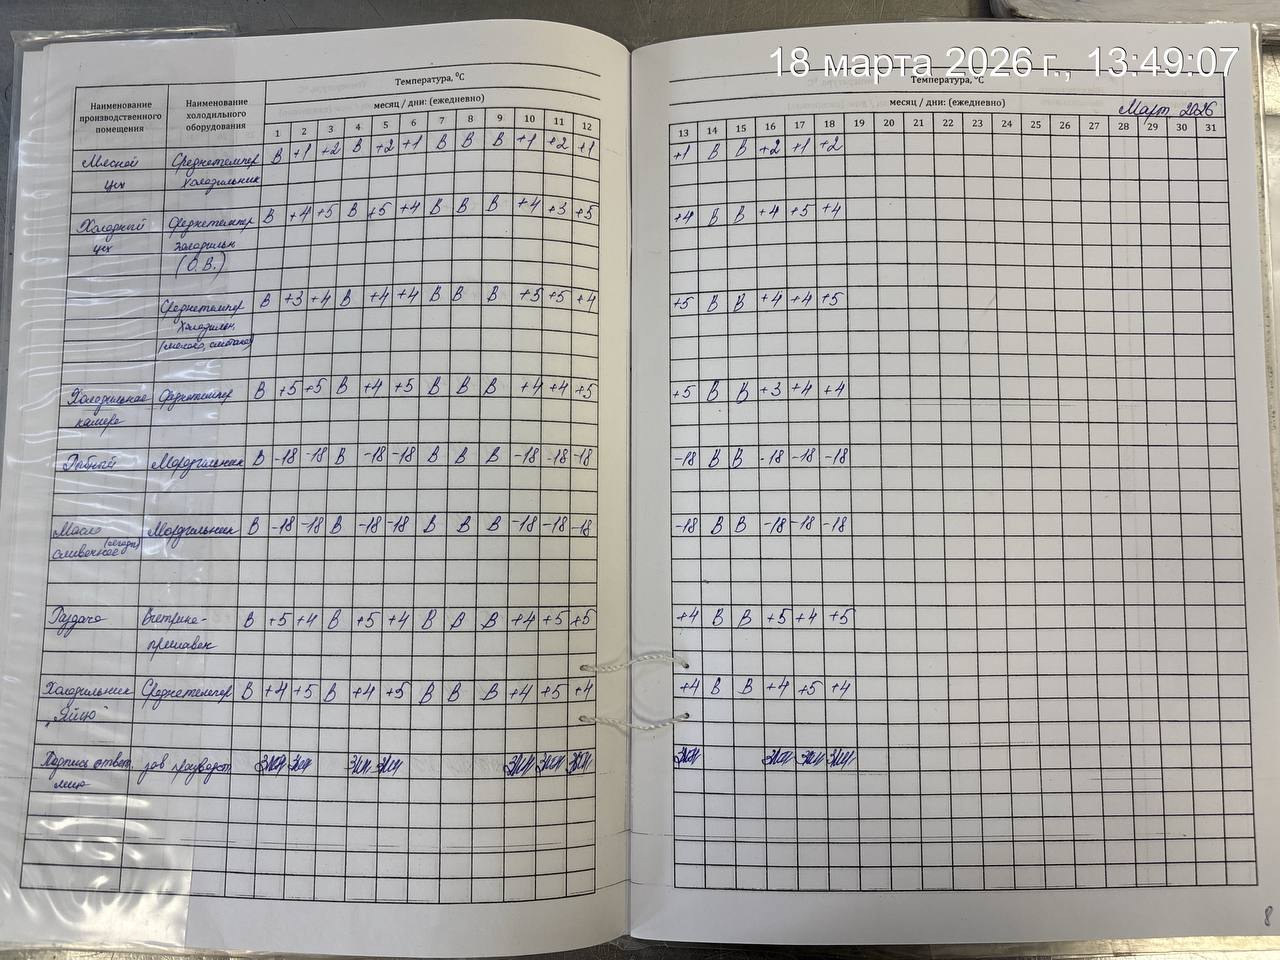 18 марта 2026 г., 13:49:07
Температура, °С
месяц / дни: (ежедневно)
Наименование производственного помещения
Наименование холодильного оборудования
1 2 3 4 5 6 7 8 9 10 11 12
Мясной Среднетемпер В +1 +2 В +2 +1 В В В +1 +2 +1
цех холодильник
Холодный Среднетемпер В +4 +5 В +5 +4 В В В +4 +3 +5
цех холодильн
(О.В.)
Среднетемпер В +3 +4 В +4 +4 В В В +5 +5 +4
холодильн.
(молоко, сметана)
Холодильная Среднетемпер В +5 +5 В +4 +5 В В В +4 +4 +5
камера
Рыбный Морозильник В -18 -18 В -18 -18 В В В -18 -18 -18
Масло Морозильник В -18 -18 В -18 -18 В В В -18 -18 -18
сливочное (ягоды)
Раздача Витрина- В +5 +4 В +5 +4 В В В +4 +5 +5
прилавок
Холодильник Среднетемпер В +4 +5 В +4 +5 В В В +4 +5 +4
"Яйцо"
Подпись ответ зав производст
лица
Температура, °С
месяц / дни: (ежедневно) Март 2026
13 14 15 16 17 18 19 20 21 22 23 24 25 26 27 28 29 30 31
+1 В В +2 +1 +2
+4 В В +4 +5 +4
+5 В В +4 +4 +5
+5 В В +3 +4 +4
-18 В В -18 -18 -18
-18 В В -18 -18 -18
+4 В В +5 +4 +5
+4 В В +4 +5 +4
8